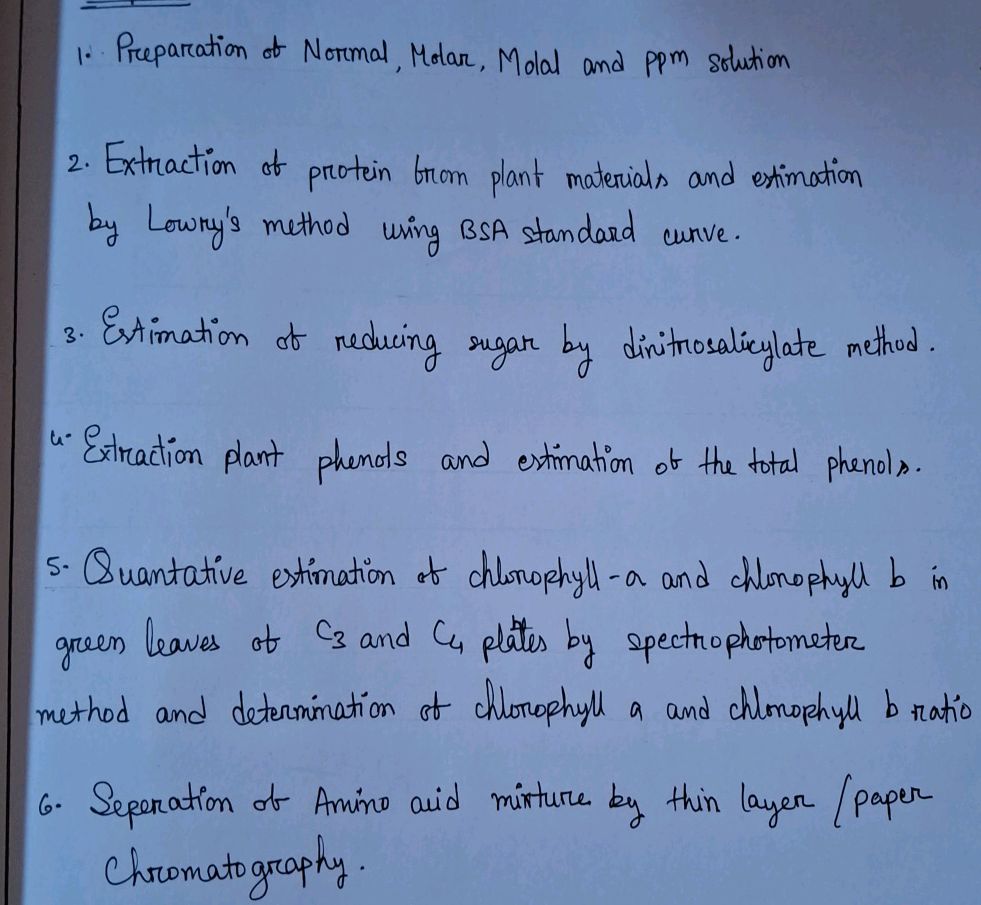 1. Preparation of Normal, Molar, Molal and ppm solution
2. Extraction of protein from plant materials and estimation
by Lowry's method using BSA standard curve.
3. Estimation of reducing sugar by dinitrosalicylate method.
4. Extraction plant phenols and estimation of the total phenols.
5. Quantative estimation of chlorophyll-a and chlorophyll b in
green leaves of C3 and C4 plates by spectrophotometer
method and determination of chlorophyll a and chlorophyll b ratio
6. Seperation of Amino acid mixture by thin layer / paper
Chromatography.